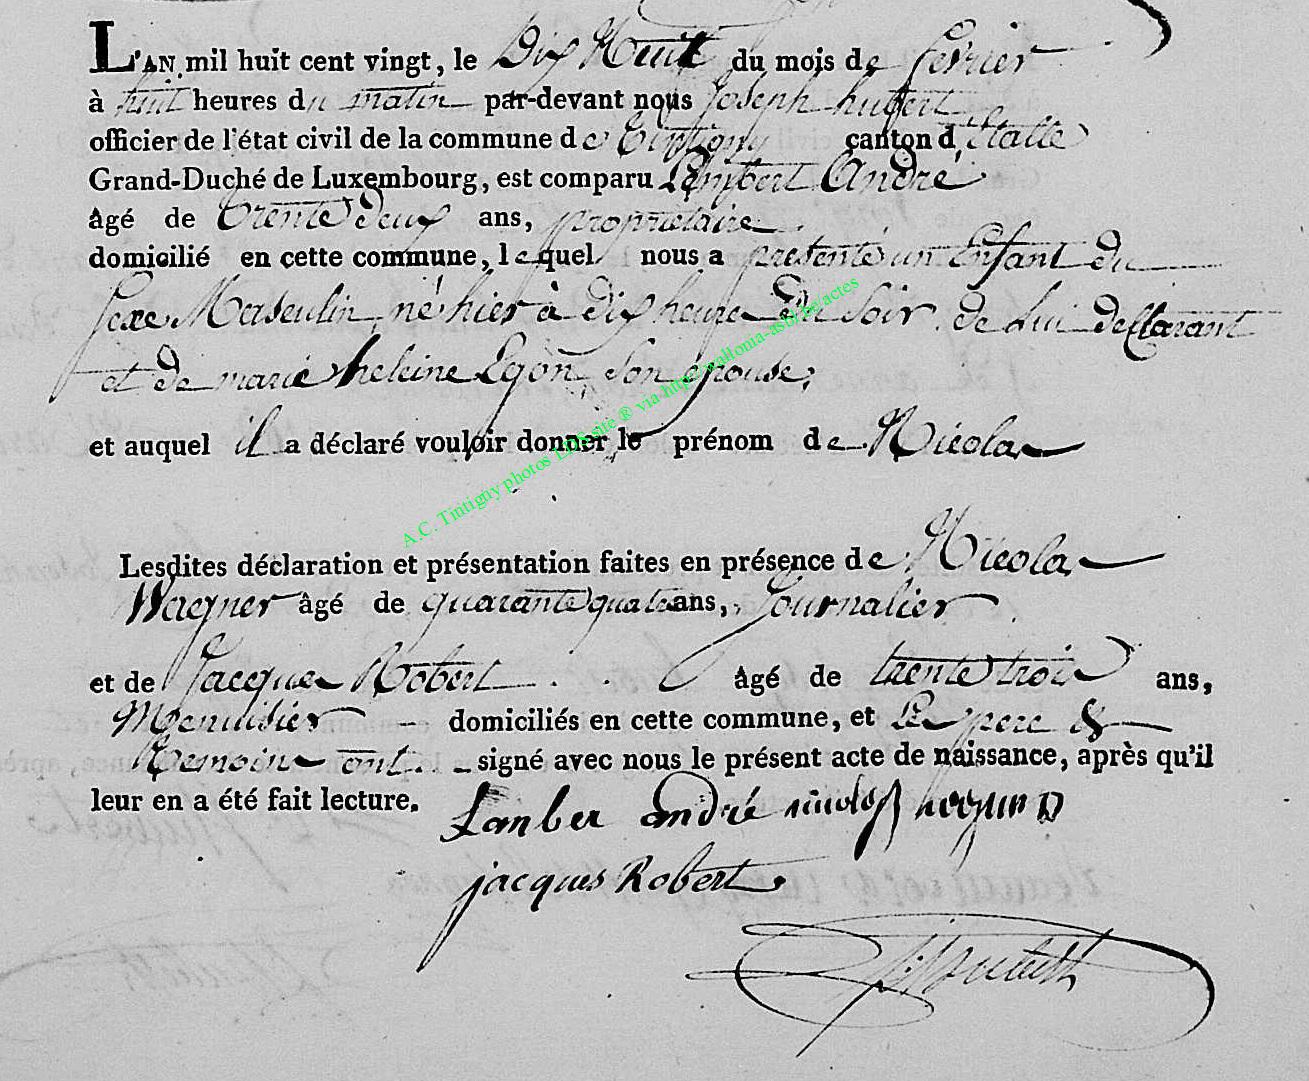 L'AN mil huit cent vingt, le Dix Huit du mois de fevrier
à huit heures du matin par-devant nous Joseph hubert
officier de l'état civil de la commune de Tintigny canton d'Etalle
Grand-Duché de Luxembourg, est comparu Lambert André
âgé de trente deux ans, propriétaire
domicilié en cette commune, lequel nous a presenté un Enfant du
sexe Masculin né hier à dix heure du Soir de Lui declarant
et de marie heleine Son epouse,
et auquel il a déclaré vouloir donner le prénom de Nicolas
A.C. Tintigny photos site ® via-http://wallonia-asbl.be/actes
Lesdites déclaration et présentation faites en présence de Nicolas
Wagner âgé de quarante quatre ans, Journalier
et de Jacques Robert âgé de trente trois ans,
Menuisier domiciliés en cette commune, et Le pere &
temoins ont signé avec nous le présent acte de naissance, après qu'il
leur en a été fait lecture.
Lamber andré
jacques Robert